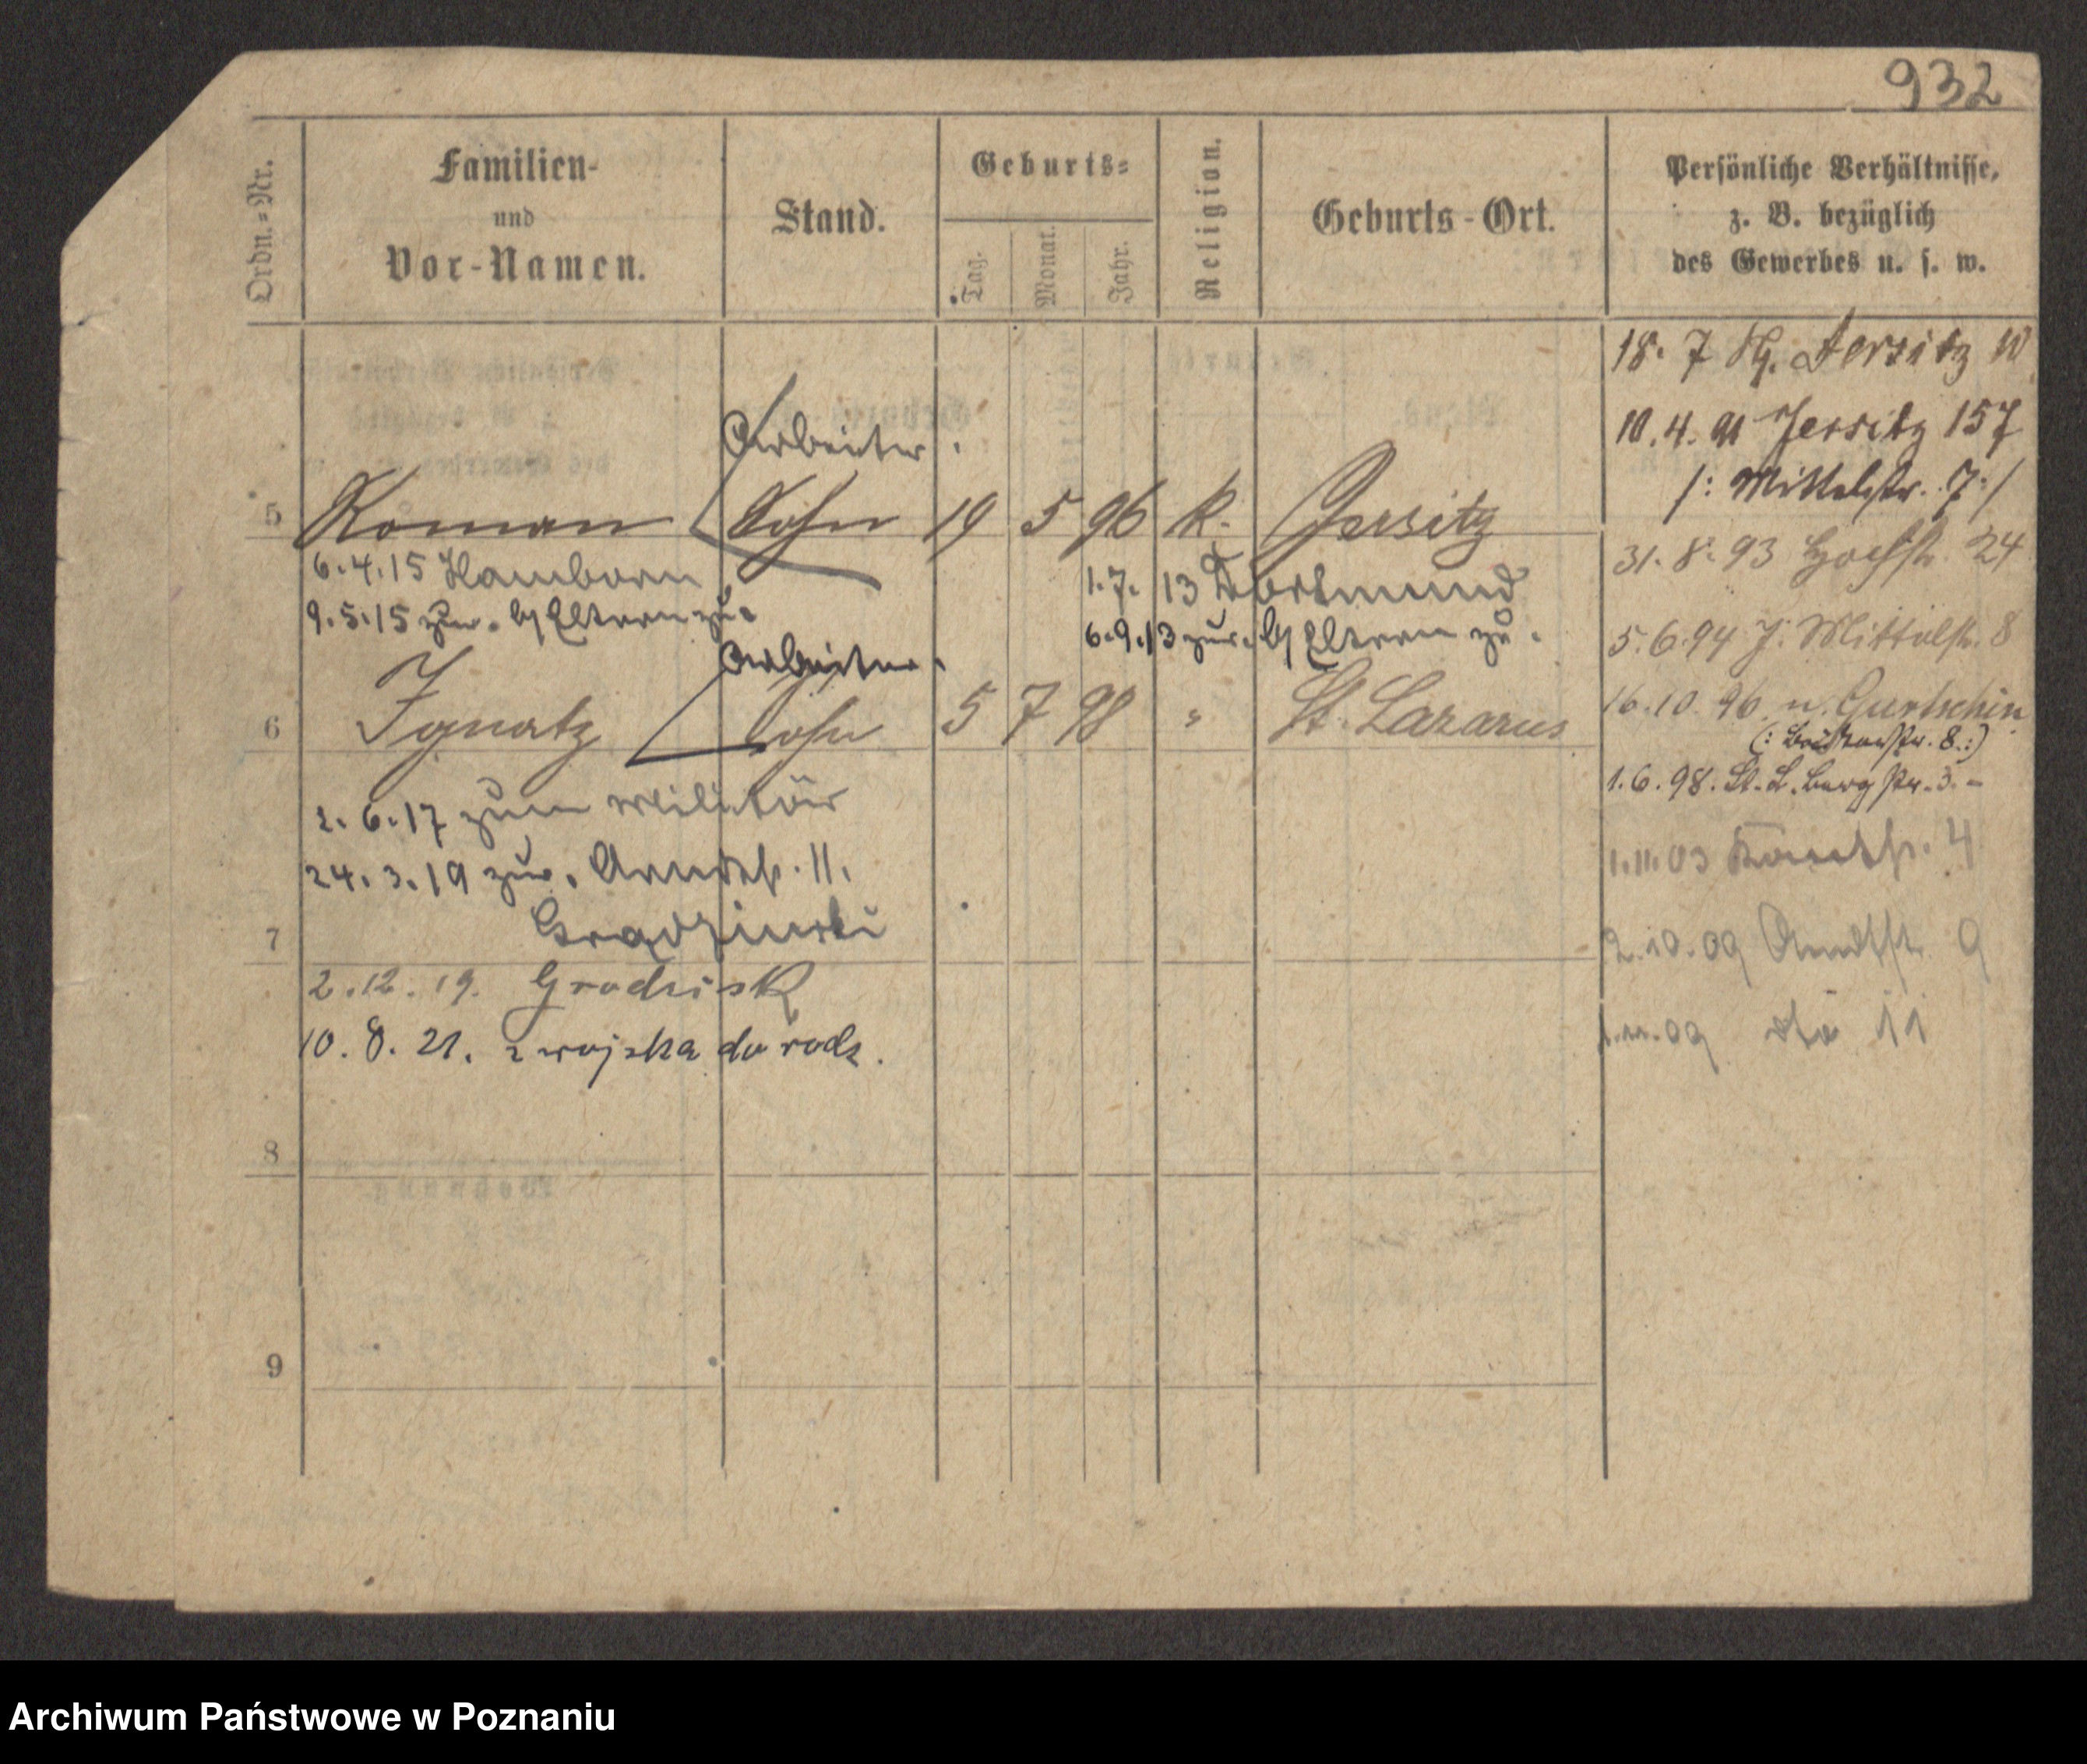 932
Ordn.-Nr.
Familien-
und
Vor-Namen.
Stand.
Geburts-
Tag.
Monat.
Jahr.
Religion.
Geburts-Ort.
Persönliche Verhältnisse,
z. B. bezüglich
des Gewerbes u. s. w.
18. 7 Jersitz
10. 4. 91 Jersitz 157
/: Mittelstr. 7 :/
Arbeiter.
5 Roman Sohn 19 5 96 k. Jersitz
31. 8. 93 24
6.4.15 Hamborn
1.7.13 Dortmund
9.5.15 zur. Eltern zu.
6.9.13 zur. Eltern zu.
5.6.94 J. Mittelstr. 8
Arbeiter.
6 Ignatz Sohn 5 7 98 " St. Lazarus
16.10.96 n. Gurtschin
8. :)
1.6.98. St. L. Bergstr. 3. -
2.6.17 zum Militär
24.3.19 zur. Arndtstr. 11.
1.11.03 4
7
2.10.09 Arndtstr. 9
2.12.19. Grodzisk
10.8.21. z wojska do rodz.
09 dto 11
8
9
Archiwum Państwowe w Poznaniu